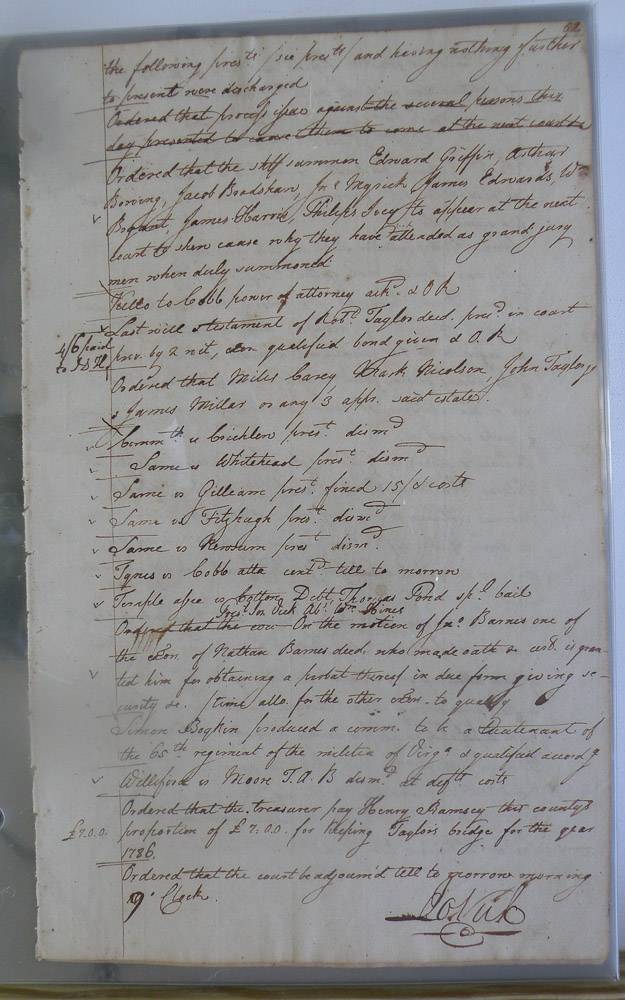 the following pres.ts (see pres.ts) and having nothing further
to present were discharged
Ordered that process issue against the several persons this
day presented to cause them to come at the next court
Ordered that the shff summon Edward Griffin, Arthur
Bowing, Jacob Bradshaw, Jno Myrick, James Edwards, Wm
Bryant, James Harris, Philips to appear at the next
court to shew cause why they have attended as grand jury
men when duly summoned
Kello to Cobb power of attorney ack.d & O R
4/6 paid
to
Last will & testament of Rob.t Taylor decd. pres.d in court
prov. by 2 wit, exor qualified bond given & O. R
Ordered that Miles Carey Mark Nicolson, John Taylor
& James Millar or any 3 appr. said estate.
Comm.th vs Cricklow pres.t dism.d
Same vs Whitehead pres.t dism.d
Same vs Gilliam pres.t fined 15/ & costs
Same vs Fitzhugh pres.t dism.d
Same vs Newsum pres.t dism.d
Tynes vs Cobb atta cont.d till to morrow
Temple assee vs Cotton Debt, Thomas Pond sp.l bail
Vick Ab.t Wm Hines
Ordered that the On the motion of Jno. Barnes one of
the exors. of Nathan Barnes decd. who made oath & cert. is gran
ted him for obtaining a probat thereof in due form giving se-
curity &c. (time allo. for the other exors. to qualify
Simon Boykin produced a comm. to be a Lieutenant of
the 65.th regiment of the militia of Virg.a & qualified accord.g
Williford vs Moore T. A. B dism.d at def.ts costs
Ordered that the treasurer pay Henry Ramsey this county's
£7.0.0.
proportion of £7:0.0. for keeping Taylor's bridge for the year
1786.
Ordered that the court be adjourn'd till to morrow morning
9 o Clock.